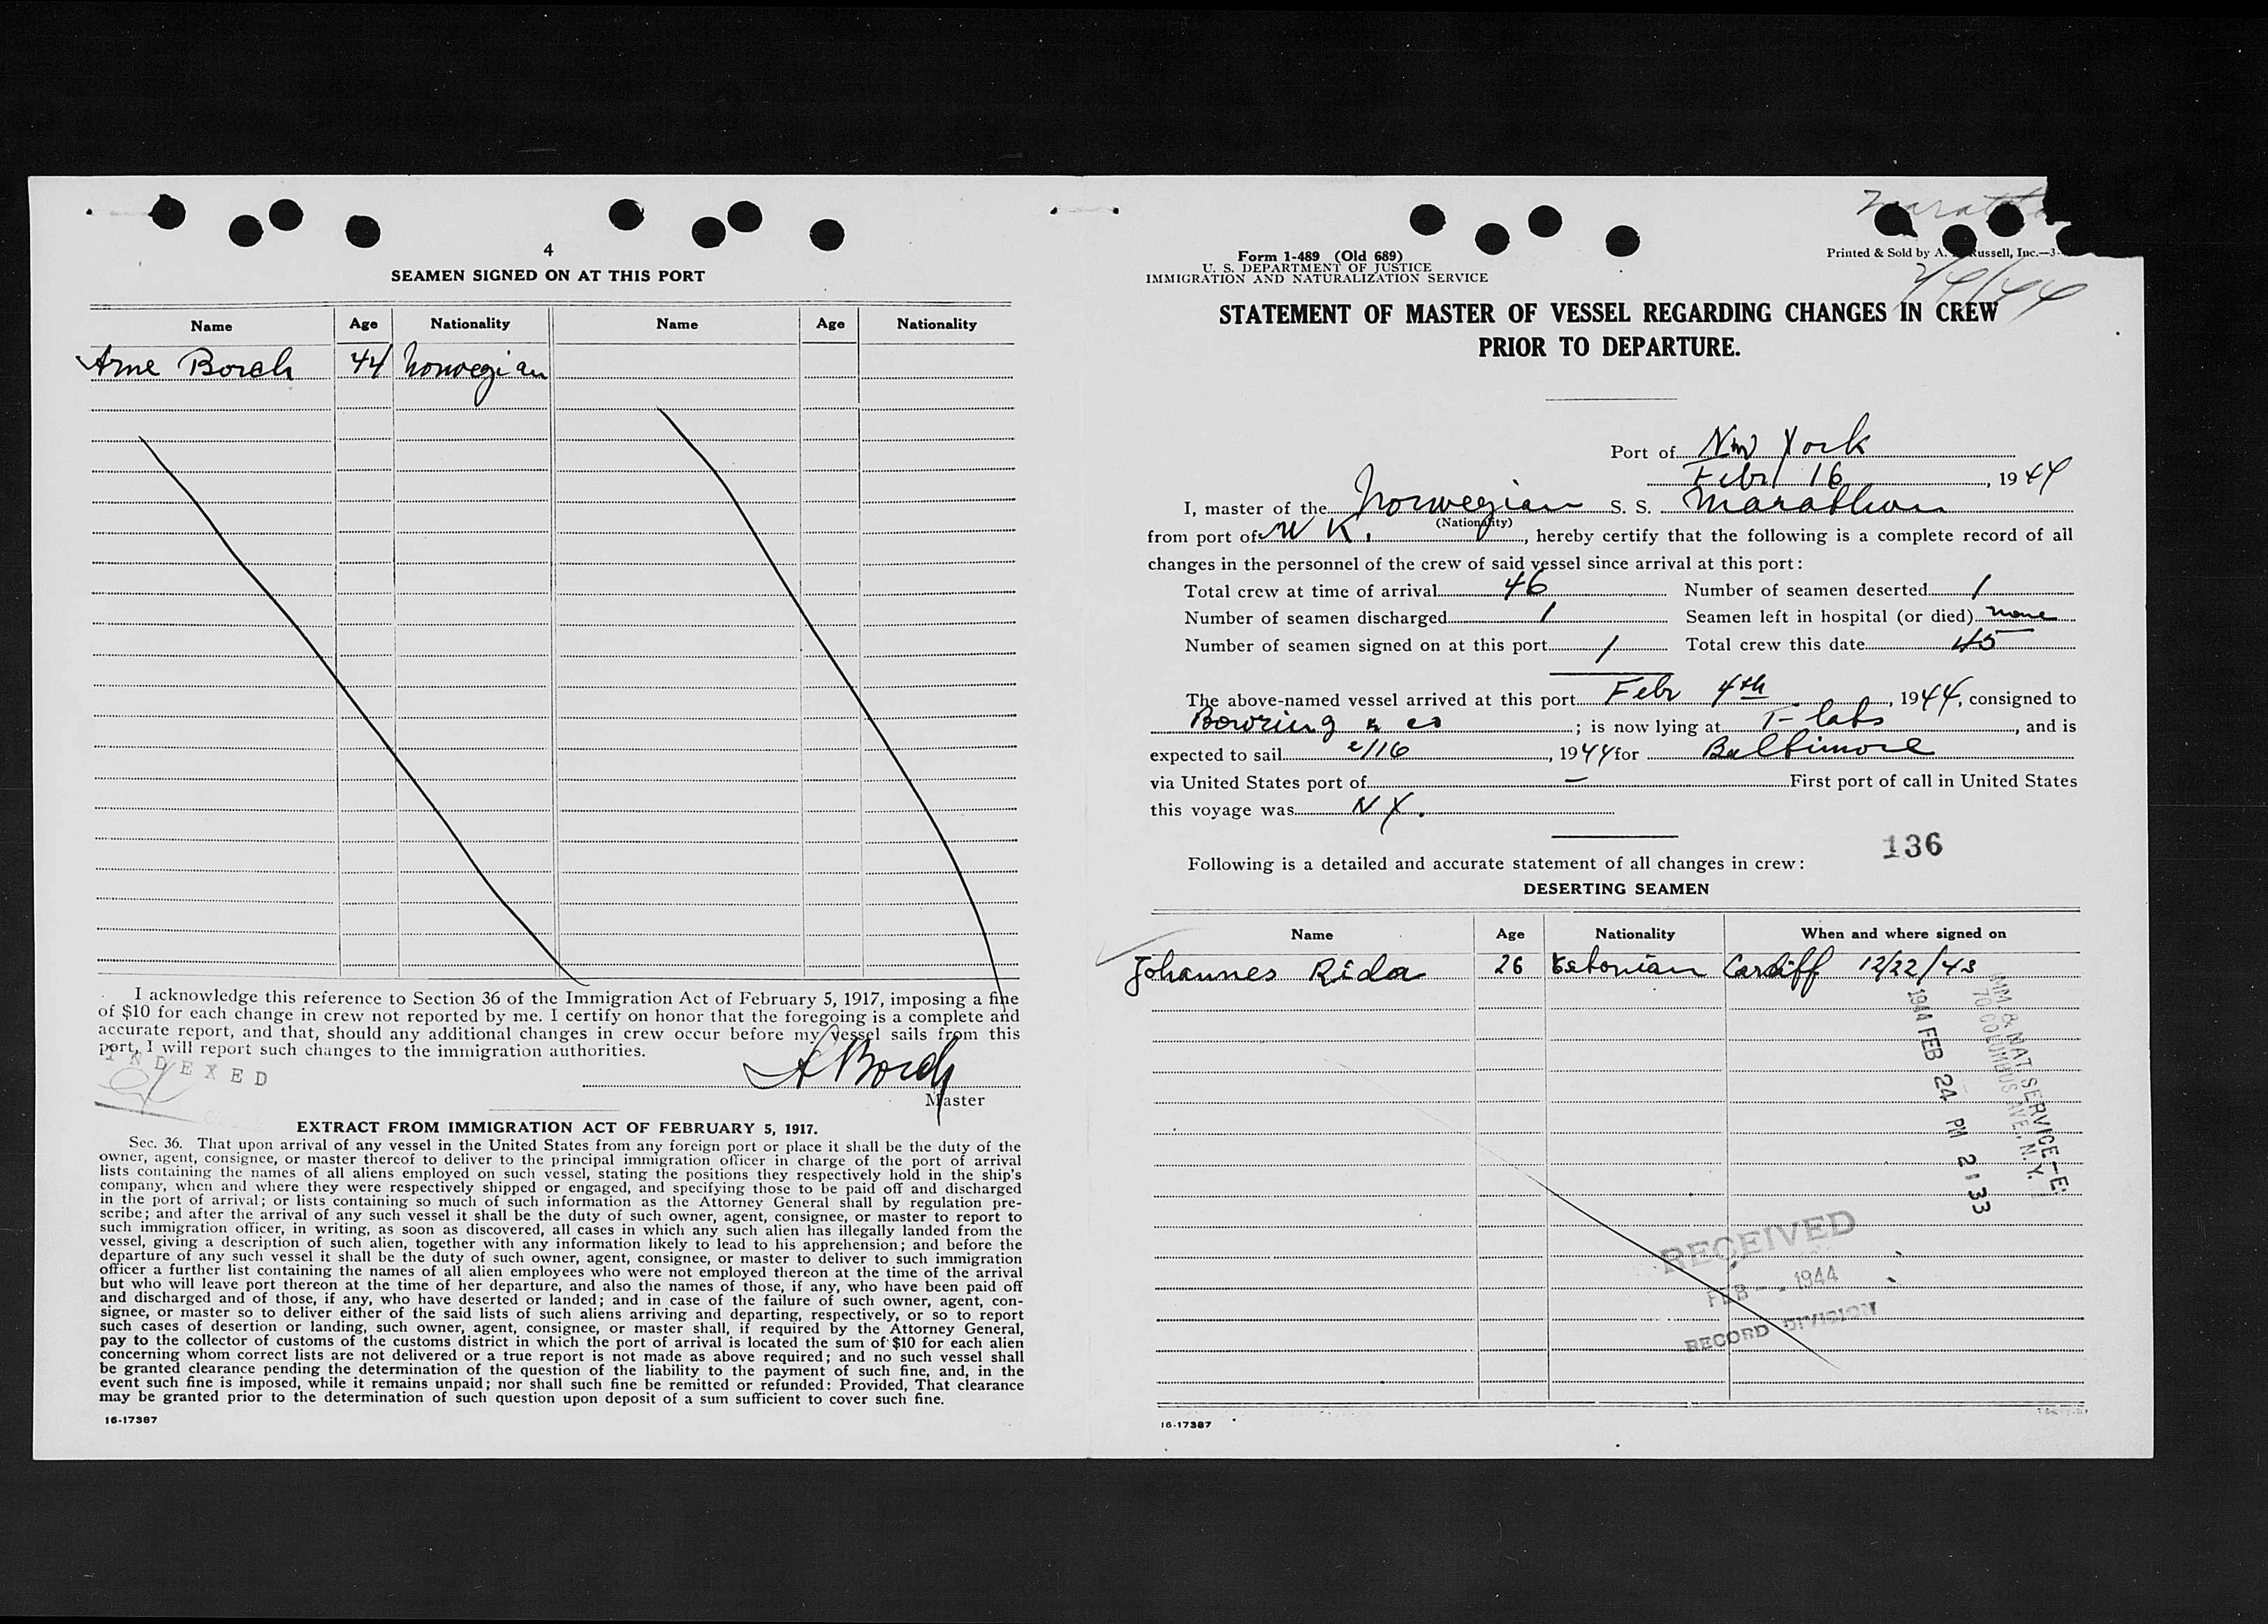 4
SEAMEN SIGNED ON AT THIS PORT
Name Age Nationality Name Age Nationality
Arne Borch 44 Norwegian
I acknowledge this reference to Section 36 of the Immigration Act of February 5, 1917, imposing a fine
of $10 for each change in crew not reported by me. I certify on honor that the foregoing is a complete and
accurate report, and that, should any additional changes in crew occur before my vessel sails from this
port, I will report such changes to the immigration authorities.
INDEXED
A Borch
Master
EXTRACT FROM IMMIGRATION ACT OF FEBRUARY 5, 1917.
Sec. 36. That upon arrival of any vessel in the United States from any foreign port or place it shall be the duty of the
owner, agent, consignee, or master thereof to deliver to the principal immigration officer in charge of the port of arrival
lists containing the names of all aliens employed on such vessel, stating the positions they respectively hold in the ship's
company, when and where they were respectively shipped or engaged, and specifying those to be paid off and discharged
in the port of arrival; or lists containing so much of such information as the Attorney General shall by regulation pre-
scribe; and after the arrival of any such vessel it shall be the duty of such owner, agent, consignee, or master to report to
such immigration officer, in writing, as soon as discovered, all cases in which any such alien has illegally landed from the
vessel, giving a description of such alien, together with any information likely to lead to his apprehension; and before the
departure of any such vessel it shall be the duty of such owner, agent, consignee, or master to deliver to such immigration
officer a further list containing the names of all alien employees who were not employed thereon at the time of the arrival
but who will leave port thereon at the time of her departure, and also the names of those, if any, who have been paid off
and discharged and of those, if any, who have deserted or landed; and in case of the failure of such owner, agent, con-
signee, or master so to deliver either of the said lists of such aliens arriving and departing, respectively, or so to report
such cases of desertion or landing, such owner, agent, consignee, or master shall, if required by the Attorney General,
pay to the collector of customs of the customs district in which the port of arrival is located the sum of $10 for each alien
concerning whom correct lists are not delivered or a true report is not made as above required; and no such vessel shall
be granted clearance pending the determination of the question of the liability to the payment of such fine, and, in the
event such fine is imposed, while it remains unpaid; nor shall such fine be remitted or refunded: Provided, That clearance
may be granted prior to the determination of such question upon deposit of a sum sufficient to cover such fine.
16-17387
Form 1-489 (Old 689)
U. S. DEPARTMENT OF JUSTICE
IMMIGRATION AND NATURALIZATION SERVICE
Printed & Sold by A. Russell, Inc.—3-
2/4/44
STATEMENT OF MASTER OF VESSEL REGARDING CHANGES IN CREW
PRIOR TO DEPARTURE.
Port of New York
Febr 16, 1944
I, master of the Norwegian S. S. Marathon
(Nationality)
from port of W K., hereby certify that the following is a complete record of all
changes in the personnel of the crew of said vessel since arrival at this port:
Total crew at time of arrival 46 Number of seamen deserted 1
Number of seamen discharged 1 Seamen left in hospital (or died) none
Number of seamen signed on at this port 1 Total crew this date 45
The above-named vessel arrived at this port Febr 4th, 1944, consigned to
Bowring & co; is now lying at, and is
expected to sail 2/16, 1944 for Baltimore
via United States port of – First port of call in United States
this voyage was N Y.
136
Following is a detailed and accurate statement of all changes in crew:
DESERTING SEAMEN
Name Age Nationality When and where signed on
Johannes Rida 26 Estonian Cardiff 12/22/43
IMM & NAT. SERVICE-
70 COLUMBUS AVE. N. Y.
1944 FEB 24 PM 2 133
RECEIVED
FEB - 1944
RECORD DIVISION
16-17387